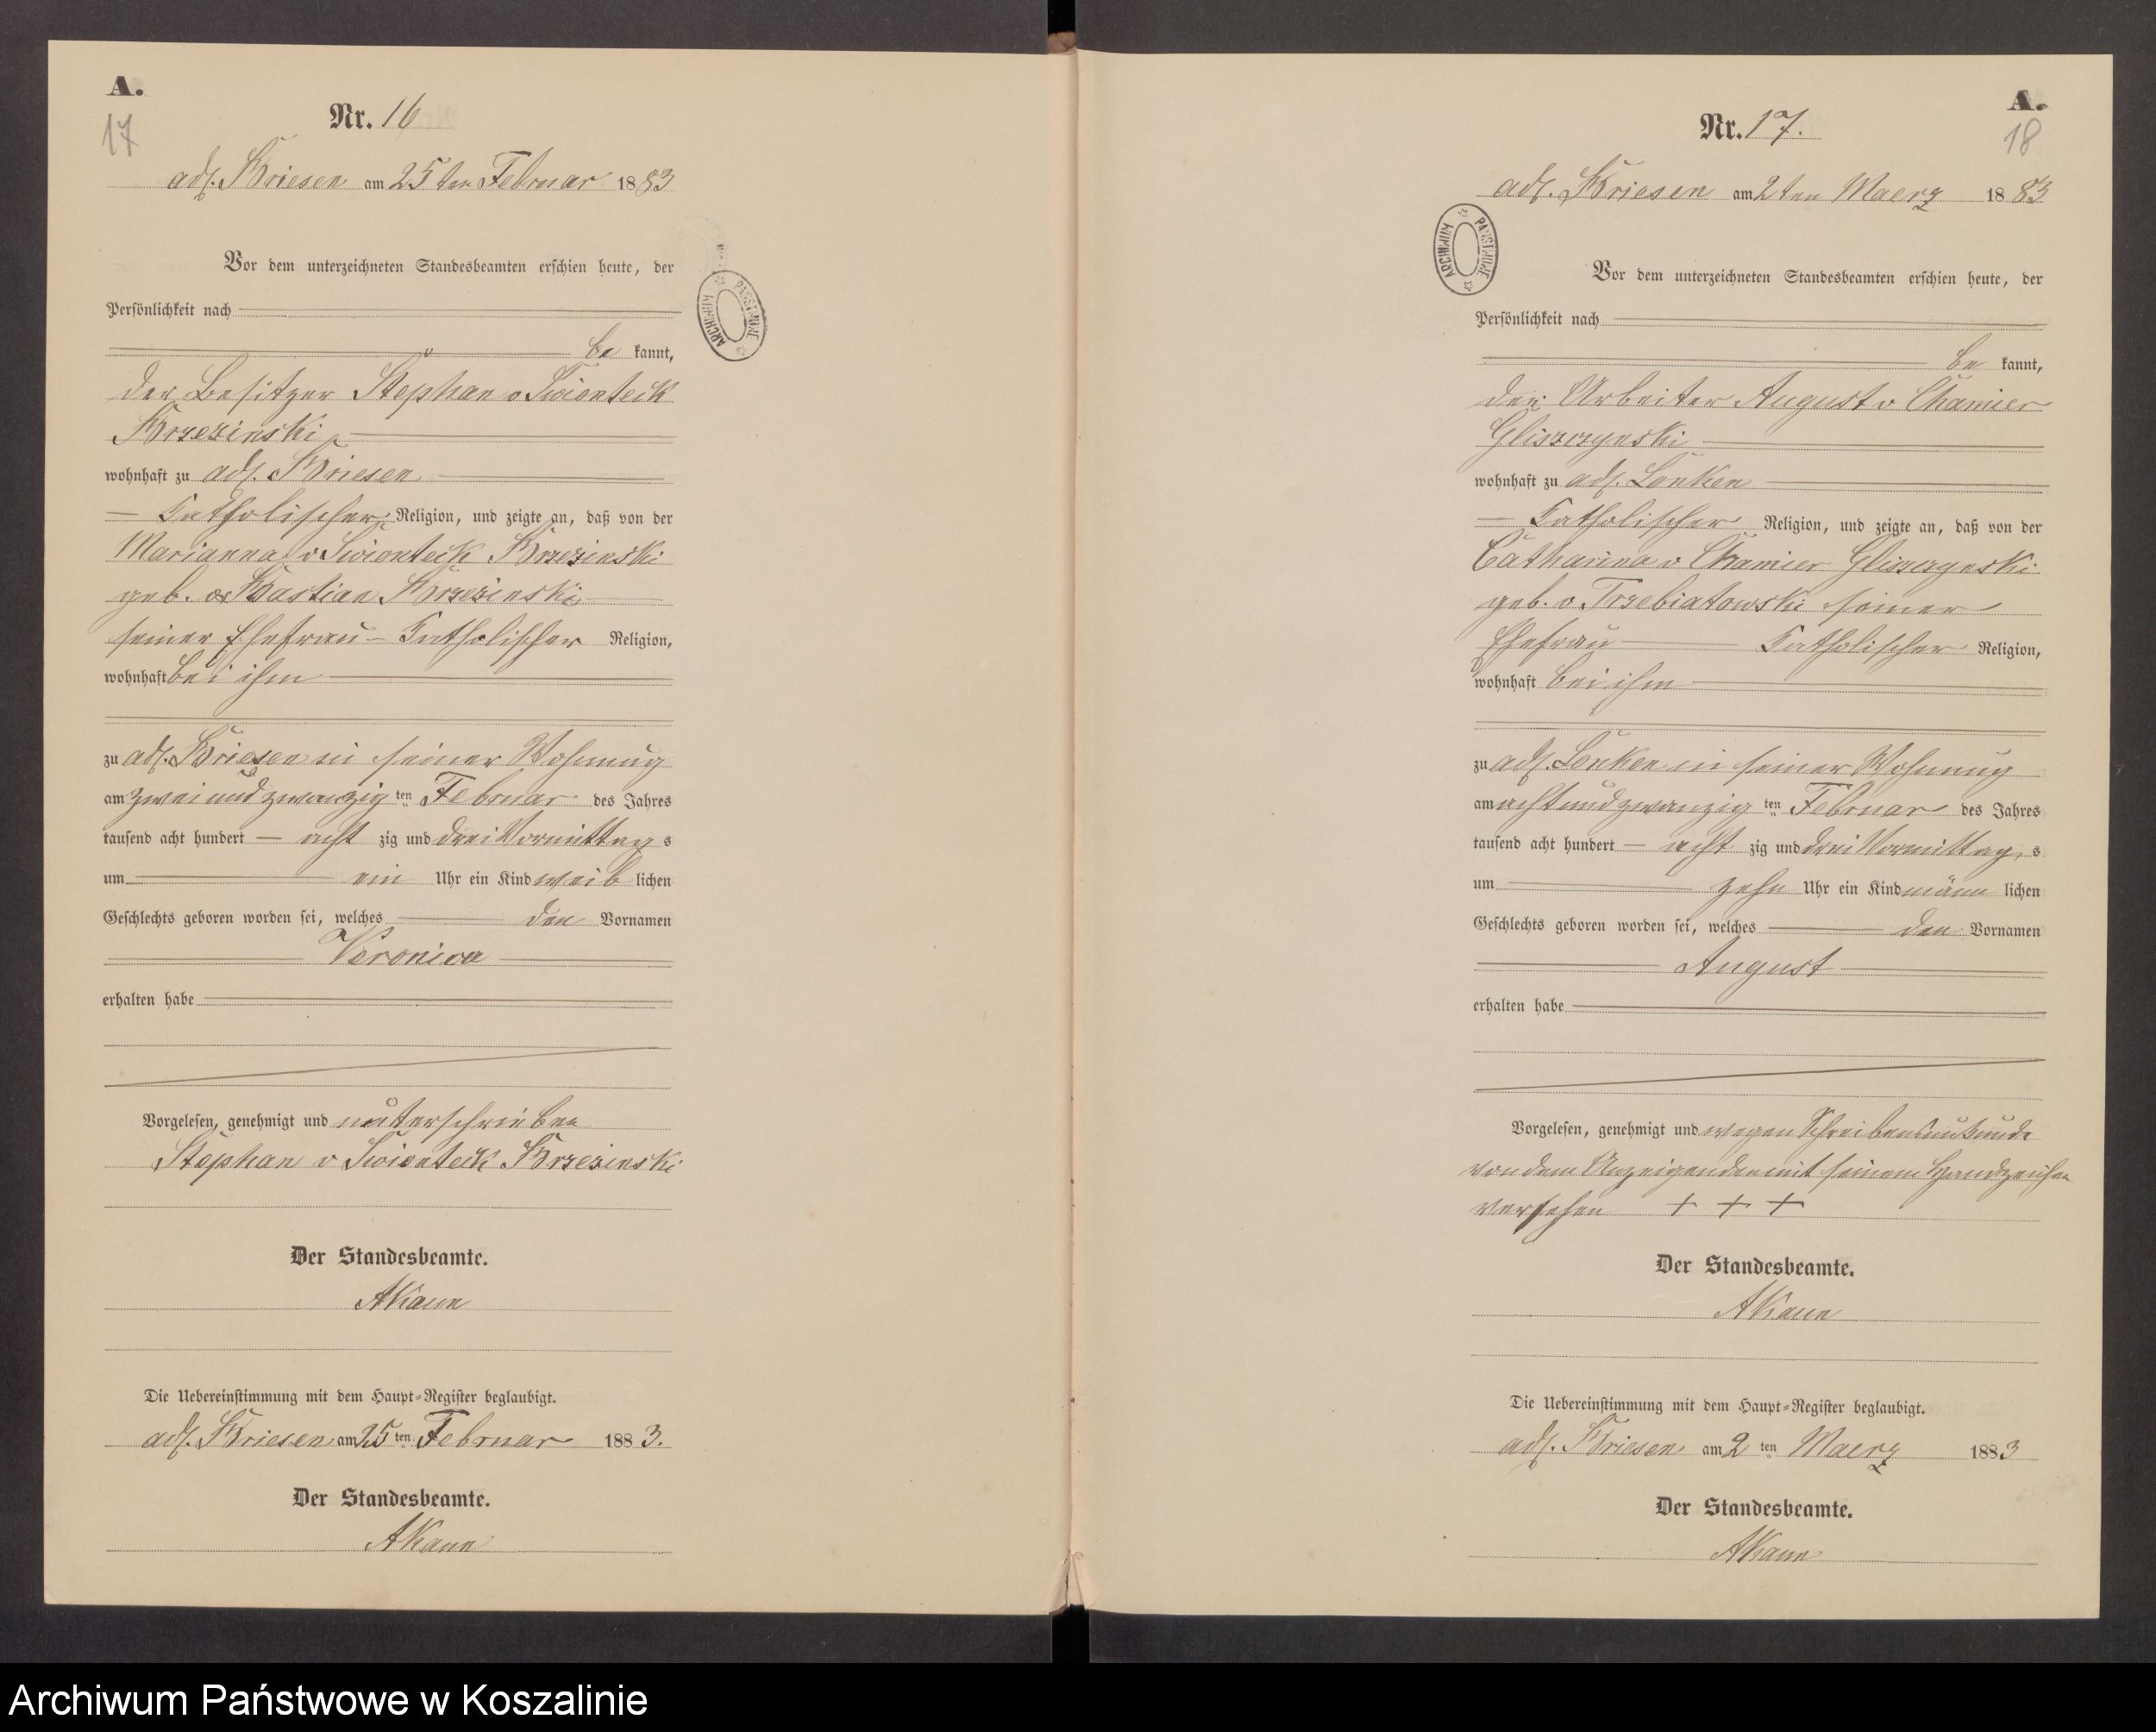 A.
17
Nr. 16
adl. Briesen am 25 ten Februar 1883
Vor dem unterzeichneten Standesbeamten erschien heute, der
Persönlichkeit nach
be kannt,
der Besitzer Stephan v Swionteck
Brzezinski
wohnhaft zu adl. Briesen
Katholischer Religion, und zeigte an, daß von der
Marianna v Swionteck Brzezinski
geb. Bastian Brzezinski
seiner Ehefrau Katholischer Religion,
wohnhaft bei ihm
zu adl. Briesen in seiner Wohnung
am zweiundzwanzig ten Februar des Jahres
tausend acht hundert acht zig und drei Vormittag s
um ein Uhr ein Kind weib lichen
Geschlechts geboren worden sei, welches den Vornamen
Veronica
erhalten habe
Vorgelesen, genehmigt und unterschrieben
Stephan v Swionteck Brzezinski
Der Standesbeamte.
AKaun
Die Uebereinstimmung mit dem Haupt-Register beglaubigt.
adl. Briesen am 25 ten Februar 1883.
Der Standesbeamte.
AKaun
ARCHIWUM PAŃSTWOWE
A.
18
Nr. 17.
adl. Briesen am 2 ten Maerz 1883
ARCHIWUM PAŃSTWOWE
Vor dem unterzeichneten Standesbeamten erschien heute, der
Persönlichkeit nach
be kannt,
der Arbeiter August v Chamier
Gliszczynski
wohnhaft zu adl. Lonken
Katholischer Religion, und zeigte an, daß von der
Catharina v Chamier Gliszczynski
geb. v. Trzebiatowski seiner
Ehefrau Katholischer Religion,
wohnhaft bei ihm
zu adl. Lonken in seiner Wohnung
am achtundzwanzig ten Februar des Jahres
tausend acht hundert acht zig und drei Vormittag s
um zehn Uhr ein Kind männ lichen
Geschlechts geboren worden sei, welches den Vornamen
August
erhalten habe
Vorgelesen, genehmigt und wegen Schreibensunkunde
von dem Anzeigenden mit seinem Handzeichen
versehen + + +
Der Standesbeamte.
AKaun
Die Uebereinstimmung mit dem Haupt-Register beglaubigt.
adl. Briesen am 2 ten Maerz 1883
Der Standesbeamte.
AKaun
Archiwum Państwowe w Koszalinie